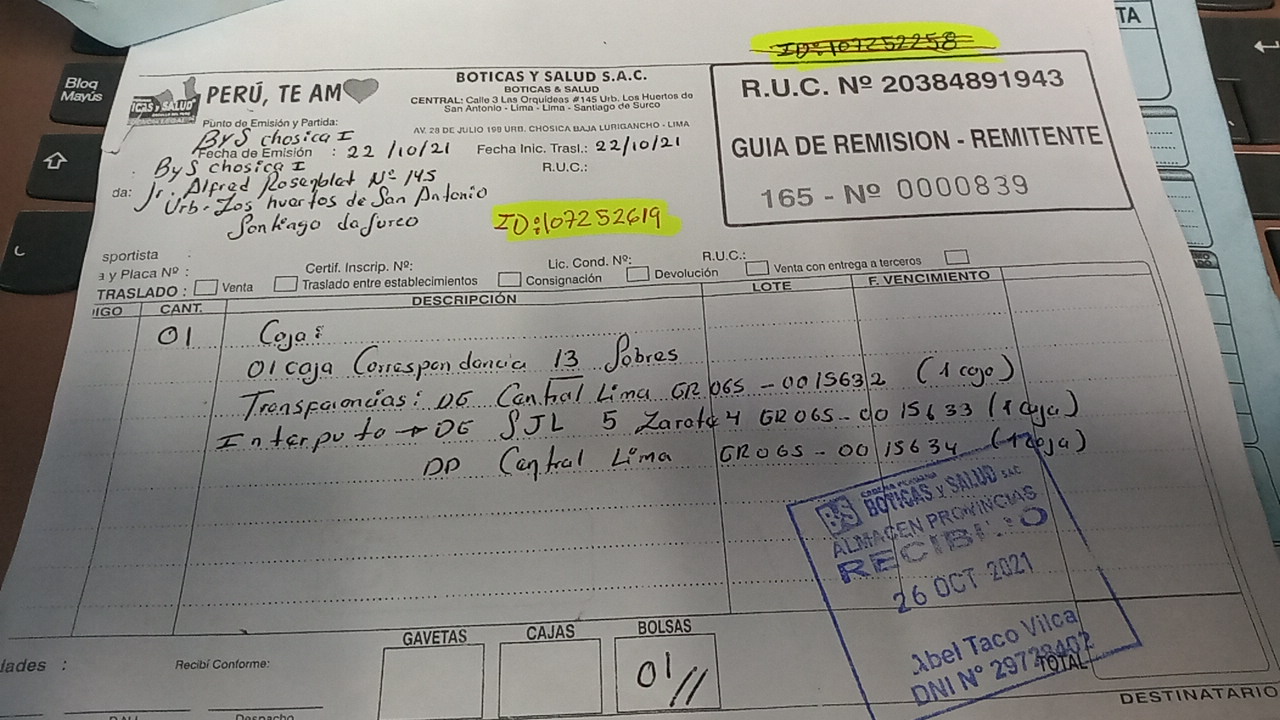 ID:107252258
TA
Bloq
Mayús
PERÚ, TE AM
BOTICAS Y SALUD S.A.C.
BOTICAS & SALUD
CENTRAL: Calle 3 Las Orquídeas #145 Urb. Los Huertos de
San Antonio - Lima - Lima - Santiago de Surco
AV. 28 DE JULIO 190 URB. CHOSICA BAJA LURIGANCHO - LIMA
R.U.C. Nº 20384891943
GUIA DE REMISION - REMITENTE
165 - Nº 0000839
Punto de Emisión y Partida:
ByS chosica I
Fecha de Emisión : 22/10/21 Fecha Inic. Trasl.: 22/10/21
ByS chosica I R.U.C.:
da: Jr. Alfred Rosenblat Nº 145
Urb. Los huertos de San Antonio
Santiago de Surco
ID:107252619
sportista :
a y Placa Nº : Certif. Inscrip. Nº: Lic. Cond. Nº: R.U.C.:
TRASLADO : Venta Traslado entre establecimientos Consignación Devolución Venta con entrega a terceros
IGO CANT. DESCRIPCIÓN LOTE F. VENCIMIENTO
01 Caja:
01 caja Correspondencia 13 Sobres
Transferencias: DE Central Lima GR065-0015632 (1 caja)
Interpvto → DE SJL 5 Zarate 4 GR065-0015633 (1 caja)
DP Central Lima GR065-0015634 (1 caja)
BS BOTICAS y SALUD SAC
ALMACEN PROVINCIAS
RECIBIDO
26 OCT 2021
Abel Taco Vilca
DNI Nº 29728462
GAVETAS CAJAS BOLSAS
01//
dades : Recibí Conforme:
TOTAL
DESTINATARIO
Despacho